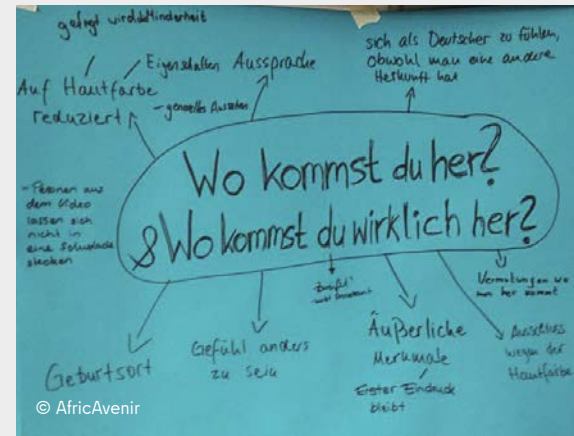 gefragt wird die Minderheit
Auf Hautfarbe
reduziert
Eigenschaften
- generelles Aussehen
Aussprache
sich als Deutscher zu fühlen,
obwohl man eine andere
Herkunft hat
Wo kommst du her?
& Wo kommst du wirklich her?
- Personen aus
dem Video
lassen sich
nicht in
eine Schublade
stecken
Geburtsort
Gefühl anders
zu sein
Äußerliche
Merkmale
Erster Eindruck
bleibt
Vermutungen wo
man her kommt
Ausschluss
wegen der
Hautfarbe
© AfricAvenir